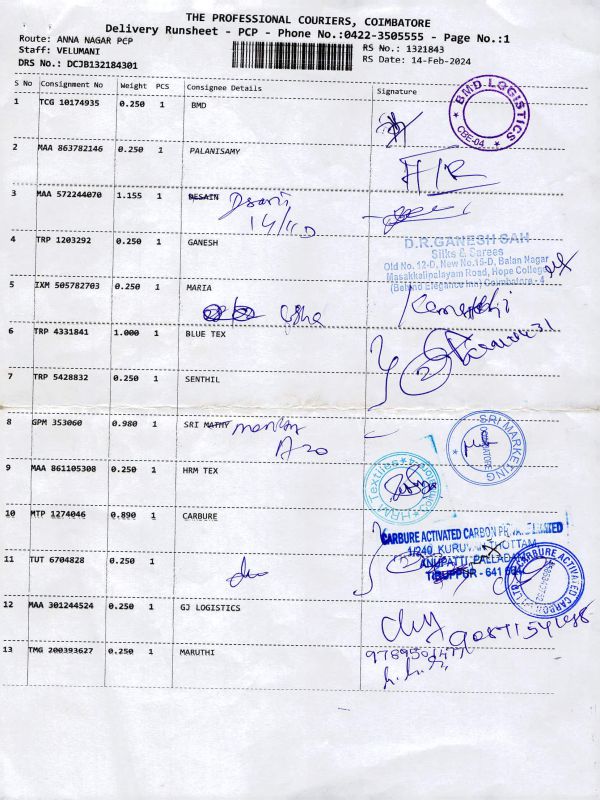 THE PROFESSIONAL COURIERS, COIMBATORE
Delivery Runsheet - PCP - Phone No.:0422-3505555 - Page No.:1
Route: ANNA NAGAR PCP
RS No.: 1321843
Staff: VELUMANI
RS Date: 14-Feb-2024
DRS No.: DCJB132184301
S No Consignment No Weight PCS Consignee Details Signature
1 TCG 10174935 0.250 1 BMD
BMD LOGISTICS
CBE-04
2 MAA 863782146 0.250 1 PALANISAMY
3 MAA 572244070 1.155 1 DESAIN
4 TRP 1203292 0.250 1 GANESH
D.R.GANESH SAH
Silks & Sarees
Old No. 12-D, New No.15-D, Balan Nagar
Masakkalipalayam Road, Hope College
(Behind Elegance Inn) Coimbatore - 4
5 IXM 505782703 0.250 1 MARIA
6 TRP 4331841 1.000 1 BLUE TEX
7 TRP 5428832 0.250 1 SENTHIL
8 GPM 353060 0.980 1 SRI MATHY
SRI MARKETING
COIMBATORE
9 MAA 861105308 0.250 1 HRM TEX
HRM Textiles
10 MTP 1274046 0.890 1 CARBURE
CARBURE ACTIVATED CARBON PRIVATE LIMITED
1/240, KURUVAN THOTTAM
ANUPATTI, PALLADAM
TIRUPPUR - 641
CARBURE ACTIVATED CARBON
11 TUT 6704828 0.250 1
12 MAA 301244524 0.250 1 GJ LOGISTICS
13 TMG 200393627 0.250 1 MARUTHI